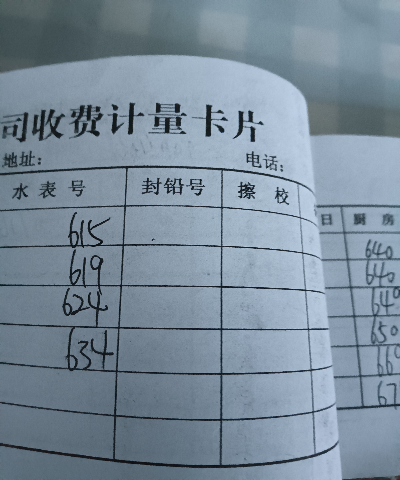 司收费计量卡片
地址: 电话:
水表号 封铅号 擦校
615
619
624
634
日 厨房
640
640
650